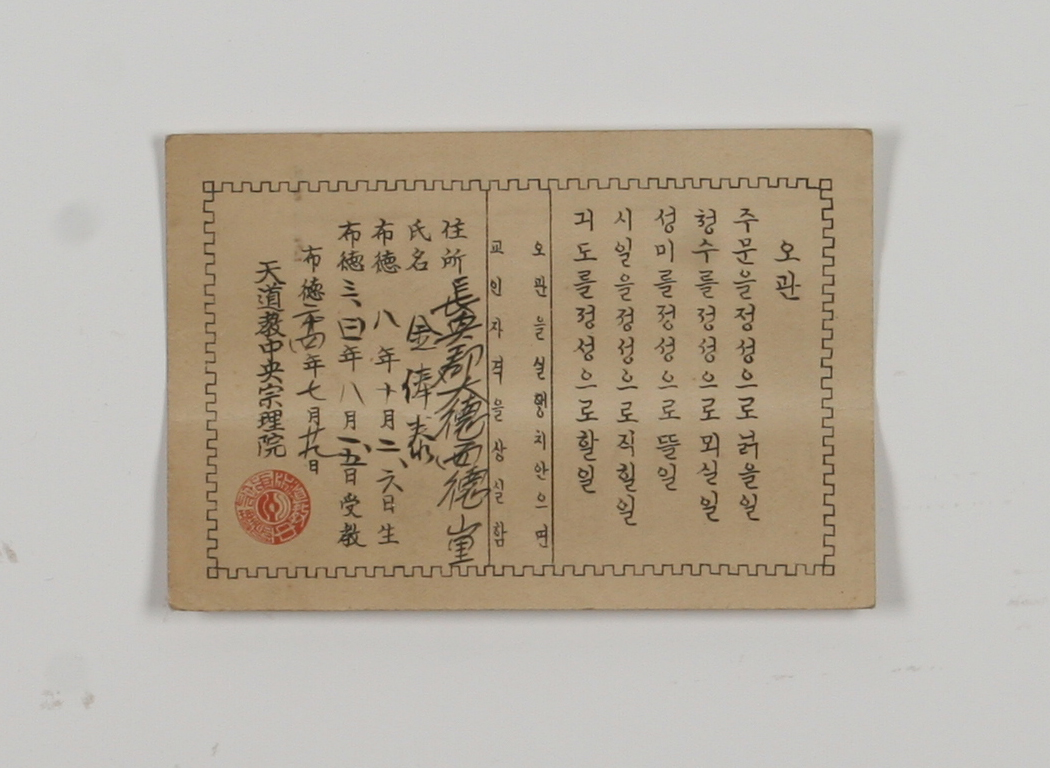 오관
주문을정성으로 읽을일
청수를정성으로 뫼실일
성미를정성으로 뜰일
시일을정성으로직힐일
긔도를정성으로할일
오관을실행치안으면
교인자격을상실함
住所 長興郡大德面德
氏名 金俸泰
布德 八年十月二、六日生
布德三、四年八月一、五日受教
布德 年七月廿九日
天道教中央宗理院